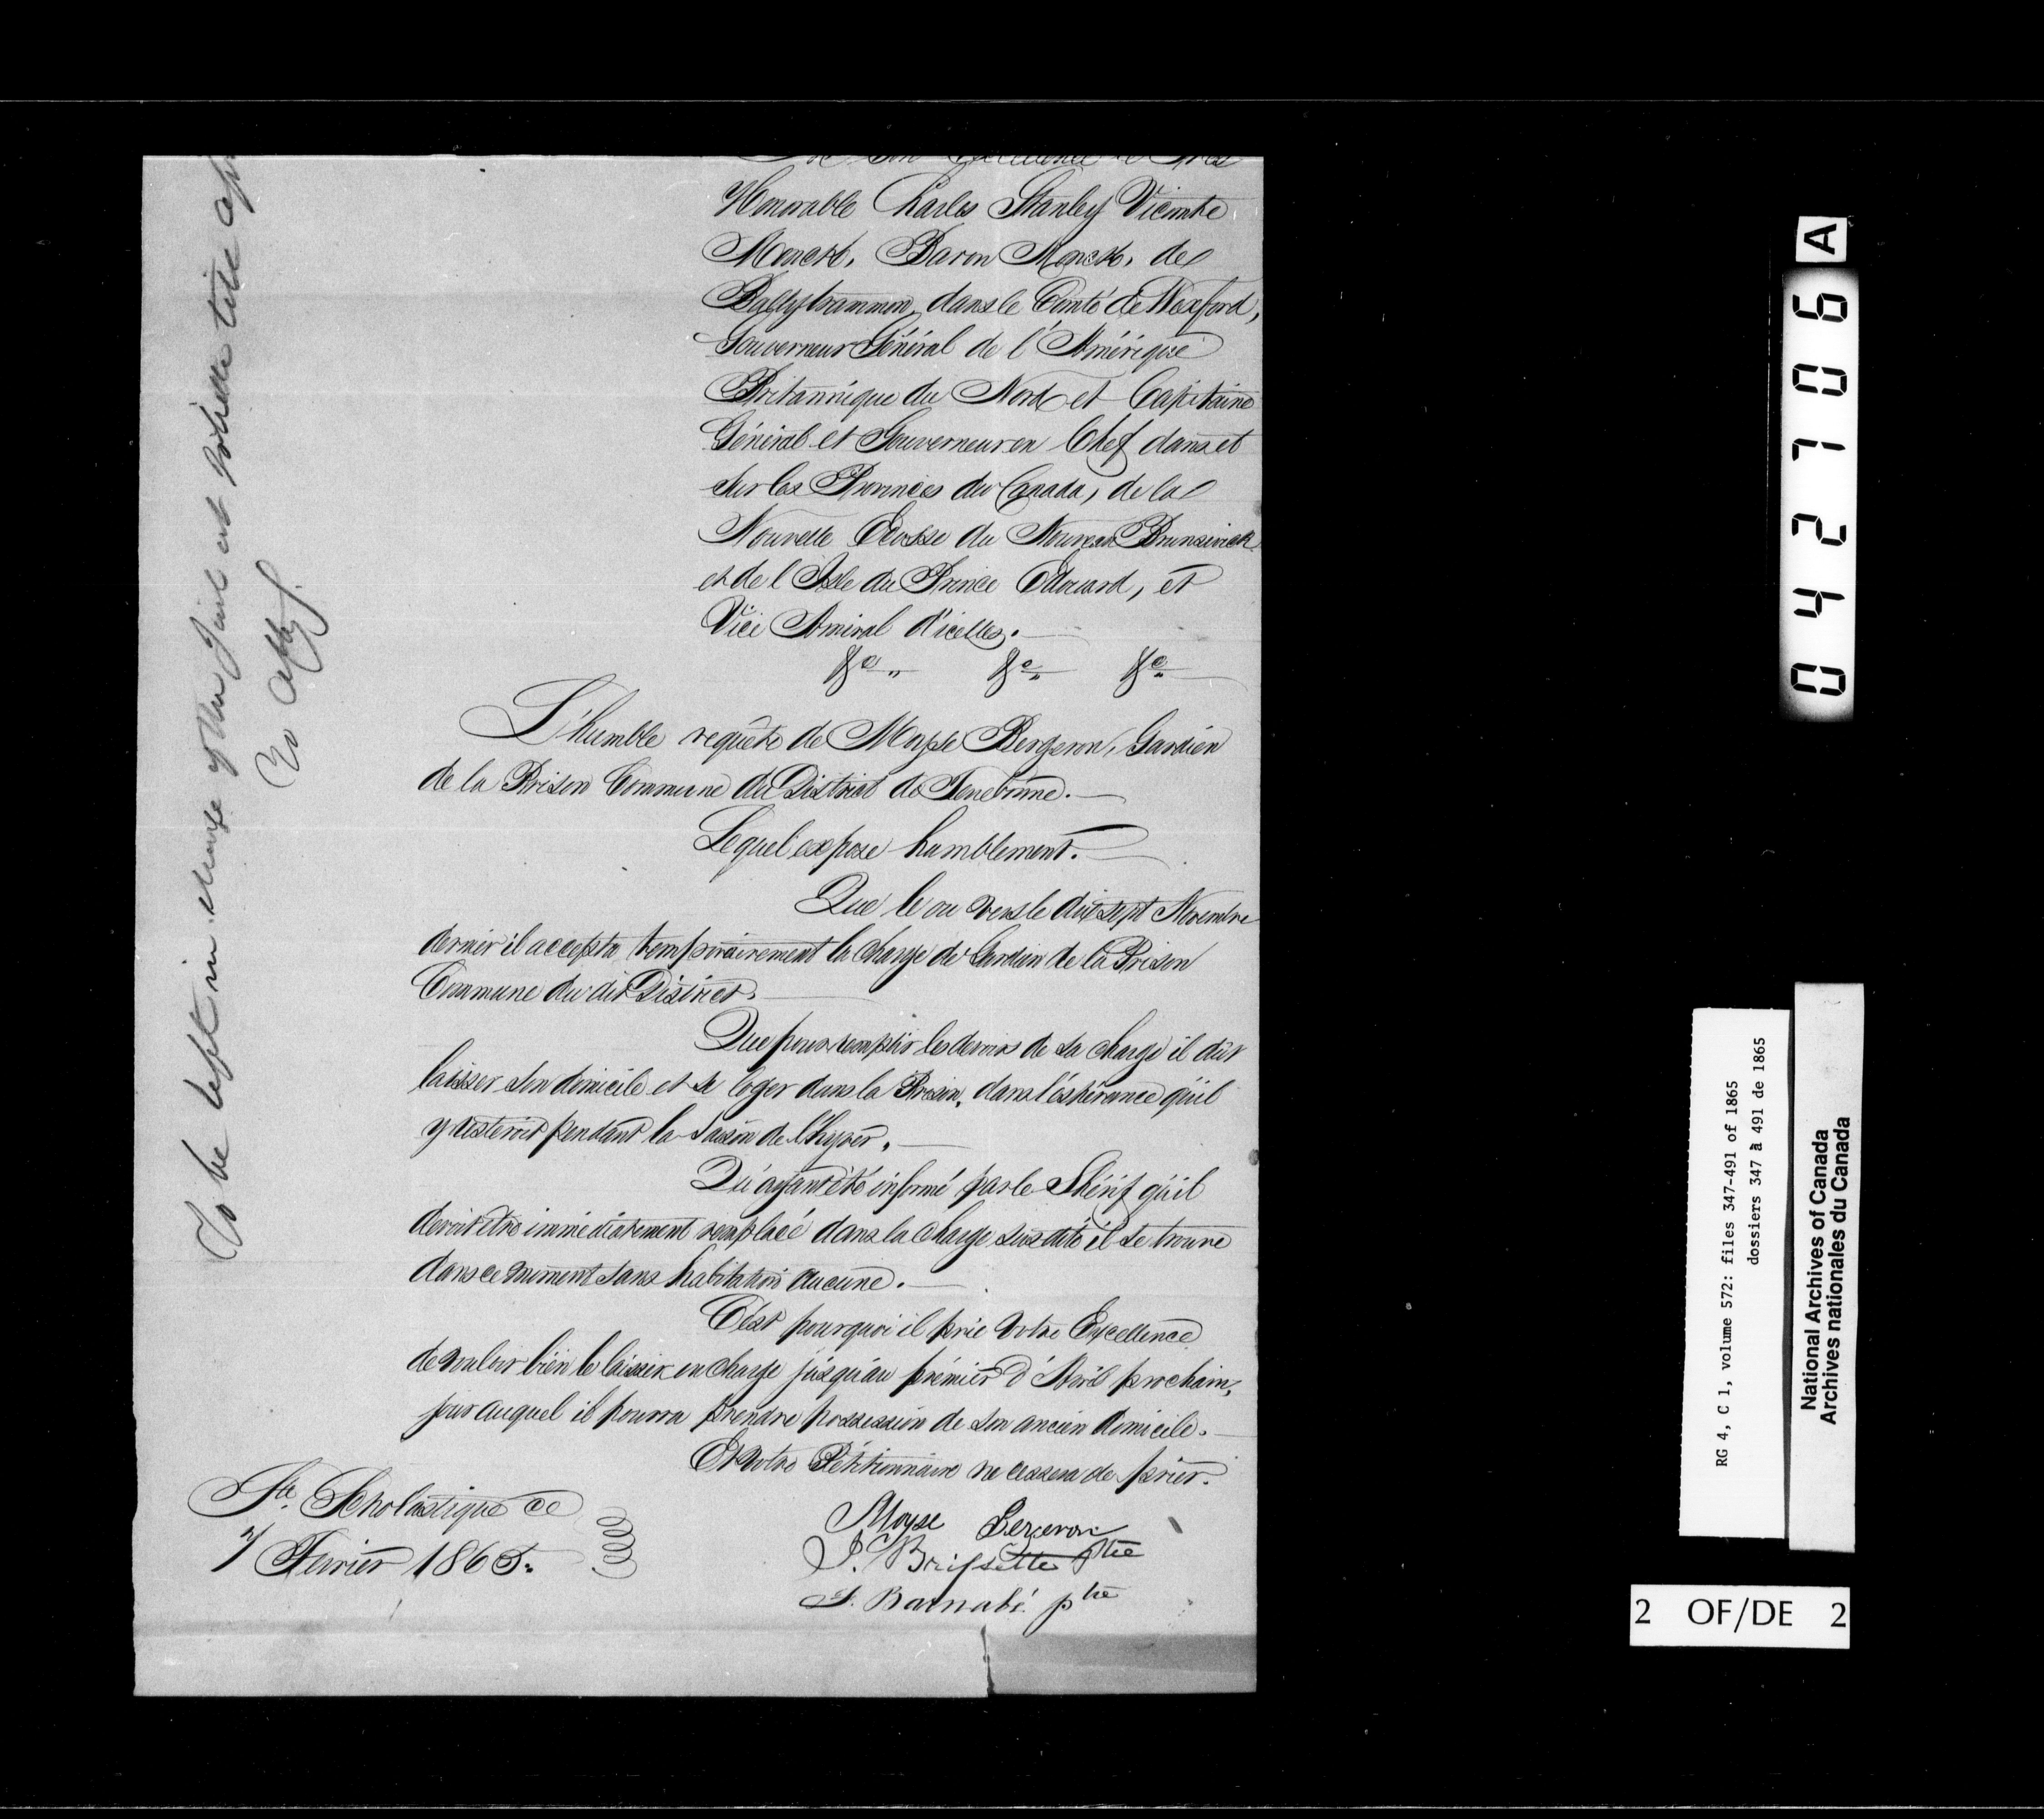 de Son Excellence le Très
Honorable Charles Stanley Vicomte
Monck, Baron Monck, de
Ballytrammon, dans le Comté de Wexford,
Gouverneur Général de l'Amérique
Britannique du Nord et Capitaine
Général et Gouverneur en Chef dans et
sur les Provinces du Canada, de la
Nouvelle Ecosse du Nouveau Brunswick
et de l'Isle du Prince Edouard, et
Vice Amiral d'icelles.
&c. &c. &c.
L'humble requête de Moyse Bergeron, Gardien
de la Prison Commune du District de Terrebonne.
Lequel expose humblement.
Que le ou vers le dix sept Novembre
dernier il accepta temporairement la charge de Gardien de la Prison
Commune du dit District.
Que pour remplir les devoirs de sa charge il dût
laisser son domicile et se loger dans la Prison, dans l'éspérance qu'il
y resteroit pendant la saison de l'hyver.
Qu'ayant été informé par le Shérif qu'il
devoit être immédiatement remplacé dans la charge sus dite il se trouve
dans ce moment sans habitation aucune.
C'est pourquoi il prie votre Excellence
de vouloir bien le laisser en charge jusqu'au prémier d'Avril prochain,
jour auquel il pourra prendre possession de son ancien domicile.
Et votre Pétitionnaire ne cessera de prier.
Ste. Scholastique ce
7 Fevrier 1865.
Moyse Bergeron
J. Brissette Ptre
F. Barnabé ptre
To be kept in charge of the Jail
To apply
0427106
A
RG 4, C 1, volume 572: files 347-491 of 1865
dossiers 347 à 491 de 1865
National Archives of Canada
Archives nationales du Canada
2 OF/DE 2